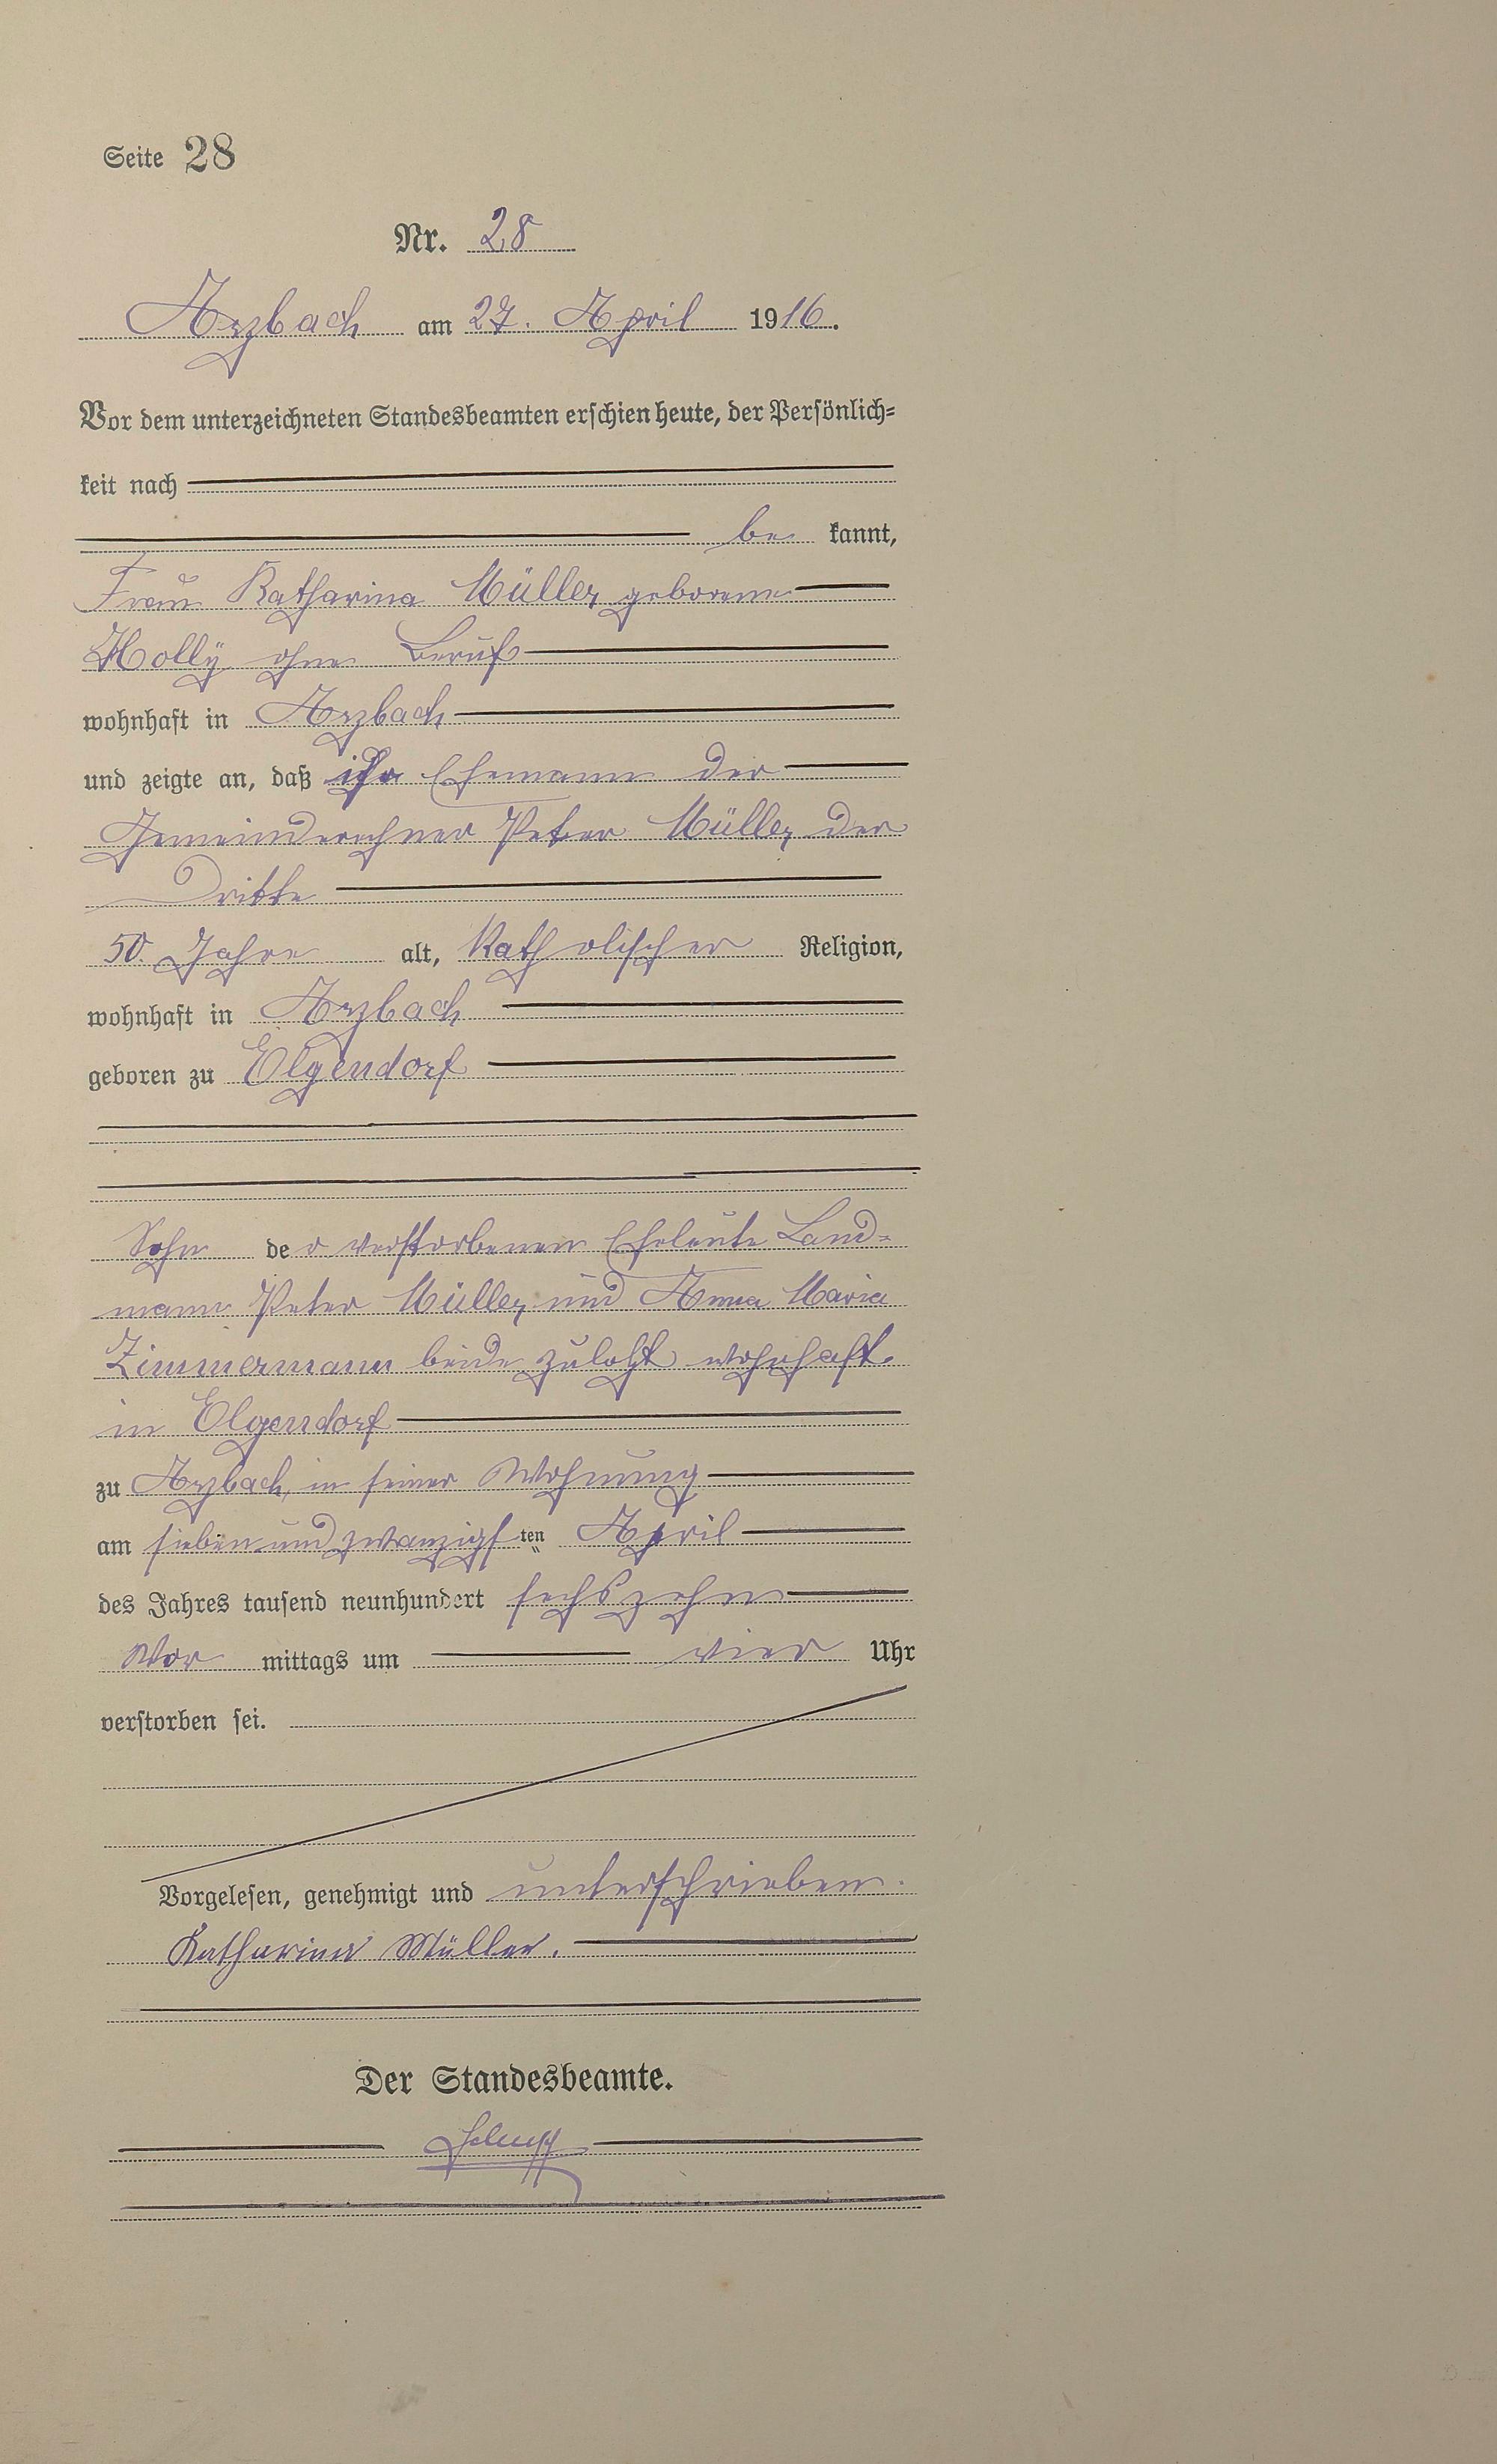 Seite 28
Nr. 28
Arzbach am 27. April 1916.
Vor dem unterzeichneten Standesbeamten erschien heute, der Persönlich-
keit nach
be kannt,
Frau Katharina Müller geborene
Holly ohne Beruf
wohnhaft in Arzbach
und zeigte an, daß ihr Ehemann der
Gemeinderechner Peter Müller der
Dritte
50 Jahre alt, Katholischer Religion,
wohnhaft in Arzbach
geboren zu Elgendorf
Sohn der verstorbenen Eheleute Land-
mann Peter Müller und Anna Maria
Zimmermann beide zuletzt wohnhaft
in Elgendorf
zu Arzbach, in seiner Wohnung
am siebenundzwanzigsten April
des Jahres tausend neunhundert sechszehn
Vor mittags um vier Uhr
verstorben sei.
Vorgelesen, genehmigt und unterschrieben.
Katharina Müller.
Der Standesbeamte.